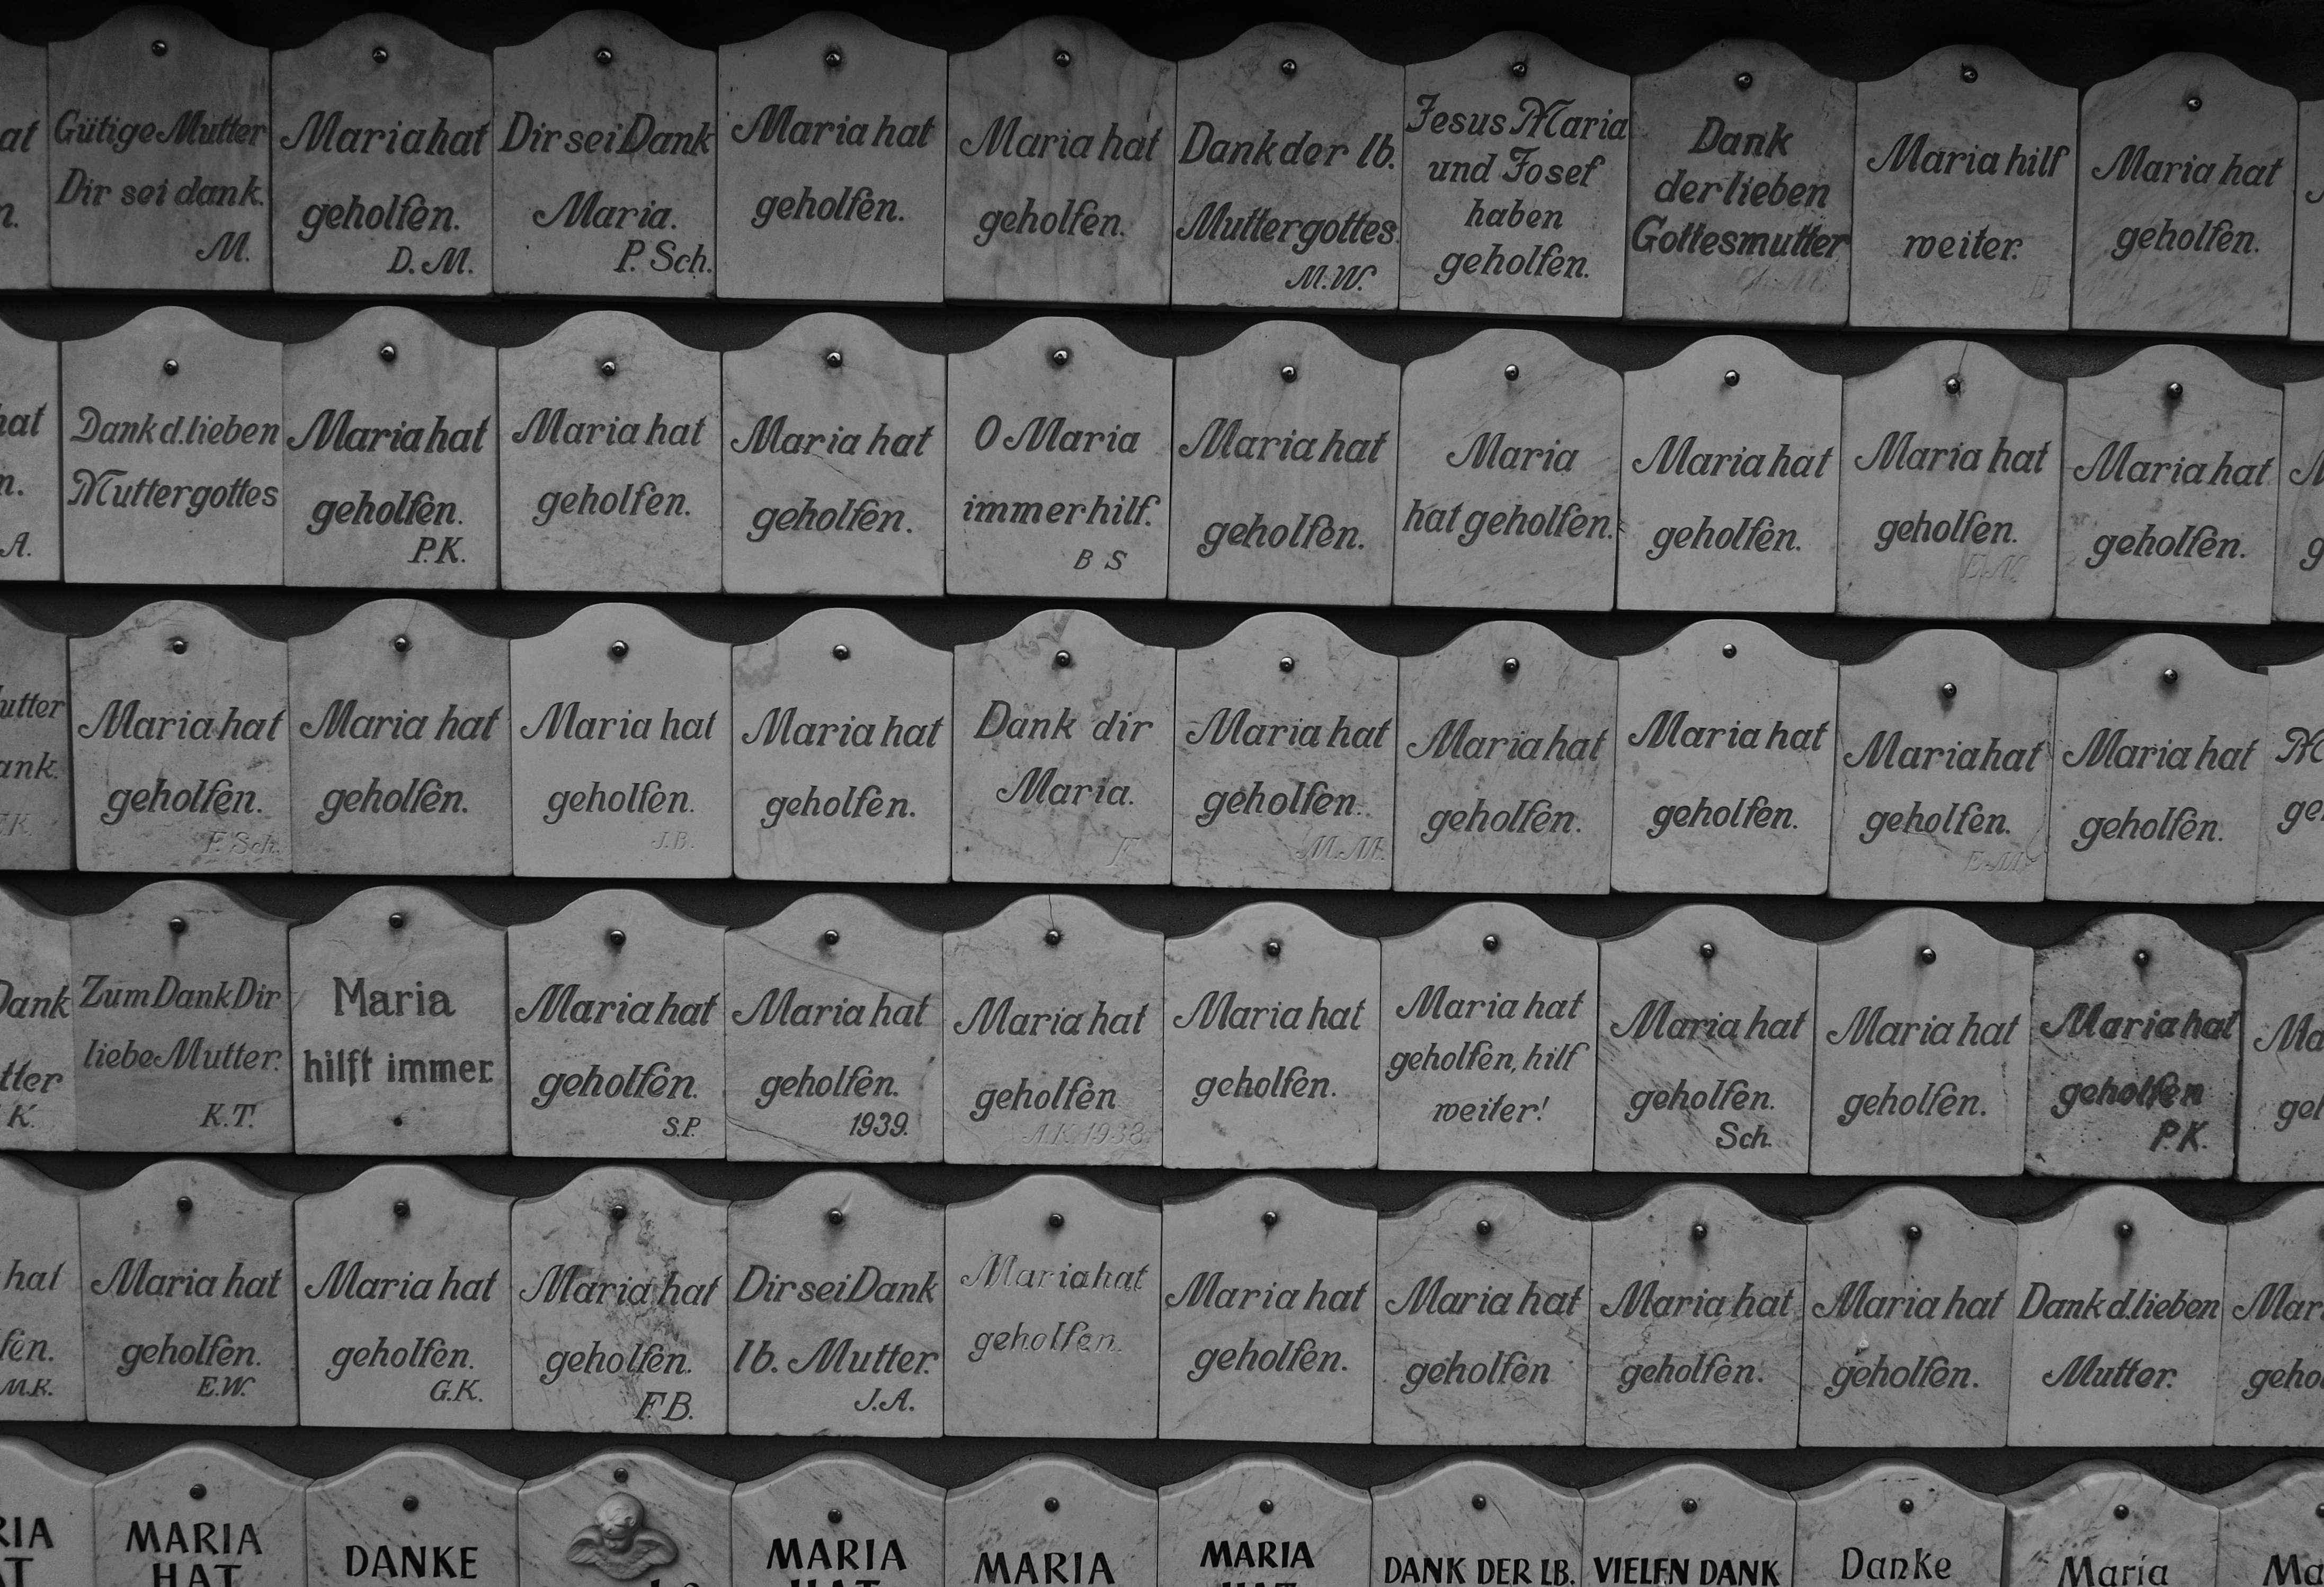 at
n.
Gütige Mutter
Dir sei dank.
M.
Maria hat
geholfen.
D. M.
Dir sei Dank
Maria.
P. Sch.
Maria hat
geholfen.
Maria hat
geholfen.
Dank der lb.
Muttergottes.
M. W.
Jesus Maria
und Josef
haben
geholfen.
Dank
der lieben
Gottesmutter
Maria hilf
weiter.
E
Maria hat
geholfen.
hat
n.
A.
Dank d. lieben
Muttergottes
Maria hat
geholfen.
P. K.
Maria hat
geholfen.
Maria hat
geholfen.
O Maria
immer hilf.
B S
Maria hat
geholfen.
Maria
hat geholfen.
Maria hat
geholfen.
Maria hat
geholfen.
Maria hat
geholfen.
utter
ank.
K.
Maria hat
geholfen.
F. Sch.
Maria hat
geholfen.
Maria hat
geholfen.
J. B.
Maria hat
geholfen.
Dank dir
Maria.
F
Maria hat
geholfen.
M. M.
Maria hat
geholfen.
Maria hat
geholfen.
Maria hat
geholfen.
E. M.
Maria hat
geholfen.
M
ge
Dank
tter
K.
Zum Dank Dir
liebe Mutter.
K. T.
Maria
hilft immer
.
Maria hat
geholfen.
S. P.
Maria hat
geholfen.
1939.
Maria hat
geholfen
A. K. 1938.
Maria hat
geholfen.
Maria hat
geholfen, hilf
weiter!
Maria hat
geholfen.
Sch.
Maria hat
geholfen.
Maria hat
geholfen
P. K.
Ma
gel
hat
fen.
M. K.
Maria hat
geholfen.
E. W.
Maria hat
geholfen.
G. K.
Maria hat
geholfen.
F B.
Dir sei Dank
lb. Mutter.
J. A.
Maria hat
geholfen.
Maria hat
geholfen.
Maria hat
geholfen
Maria hat
geholfen.
Maria hat
geholfen.
Dank d. lieben
Mutter.
Mari
geho
RIA
AT
MARIA
HAT
DANKE
MARIA
HAT
MARIA
MARIA
HAT
DANK DER LB.
VIELEN DANK
Danke
Maria
Ma